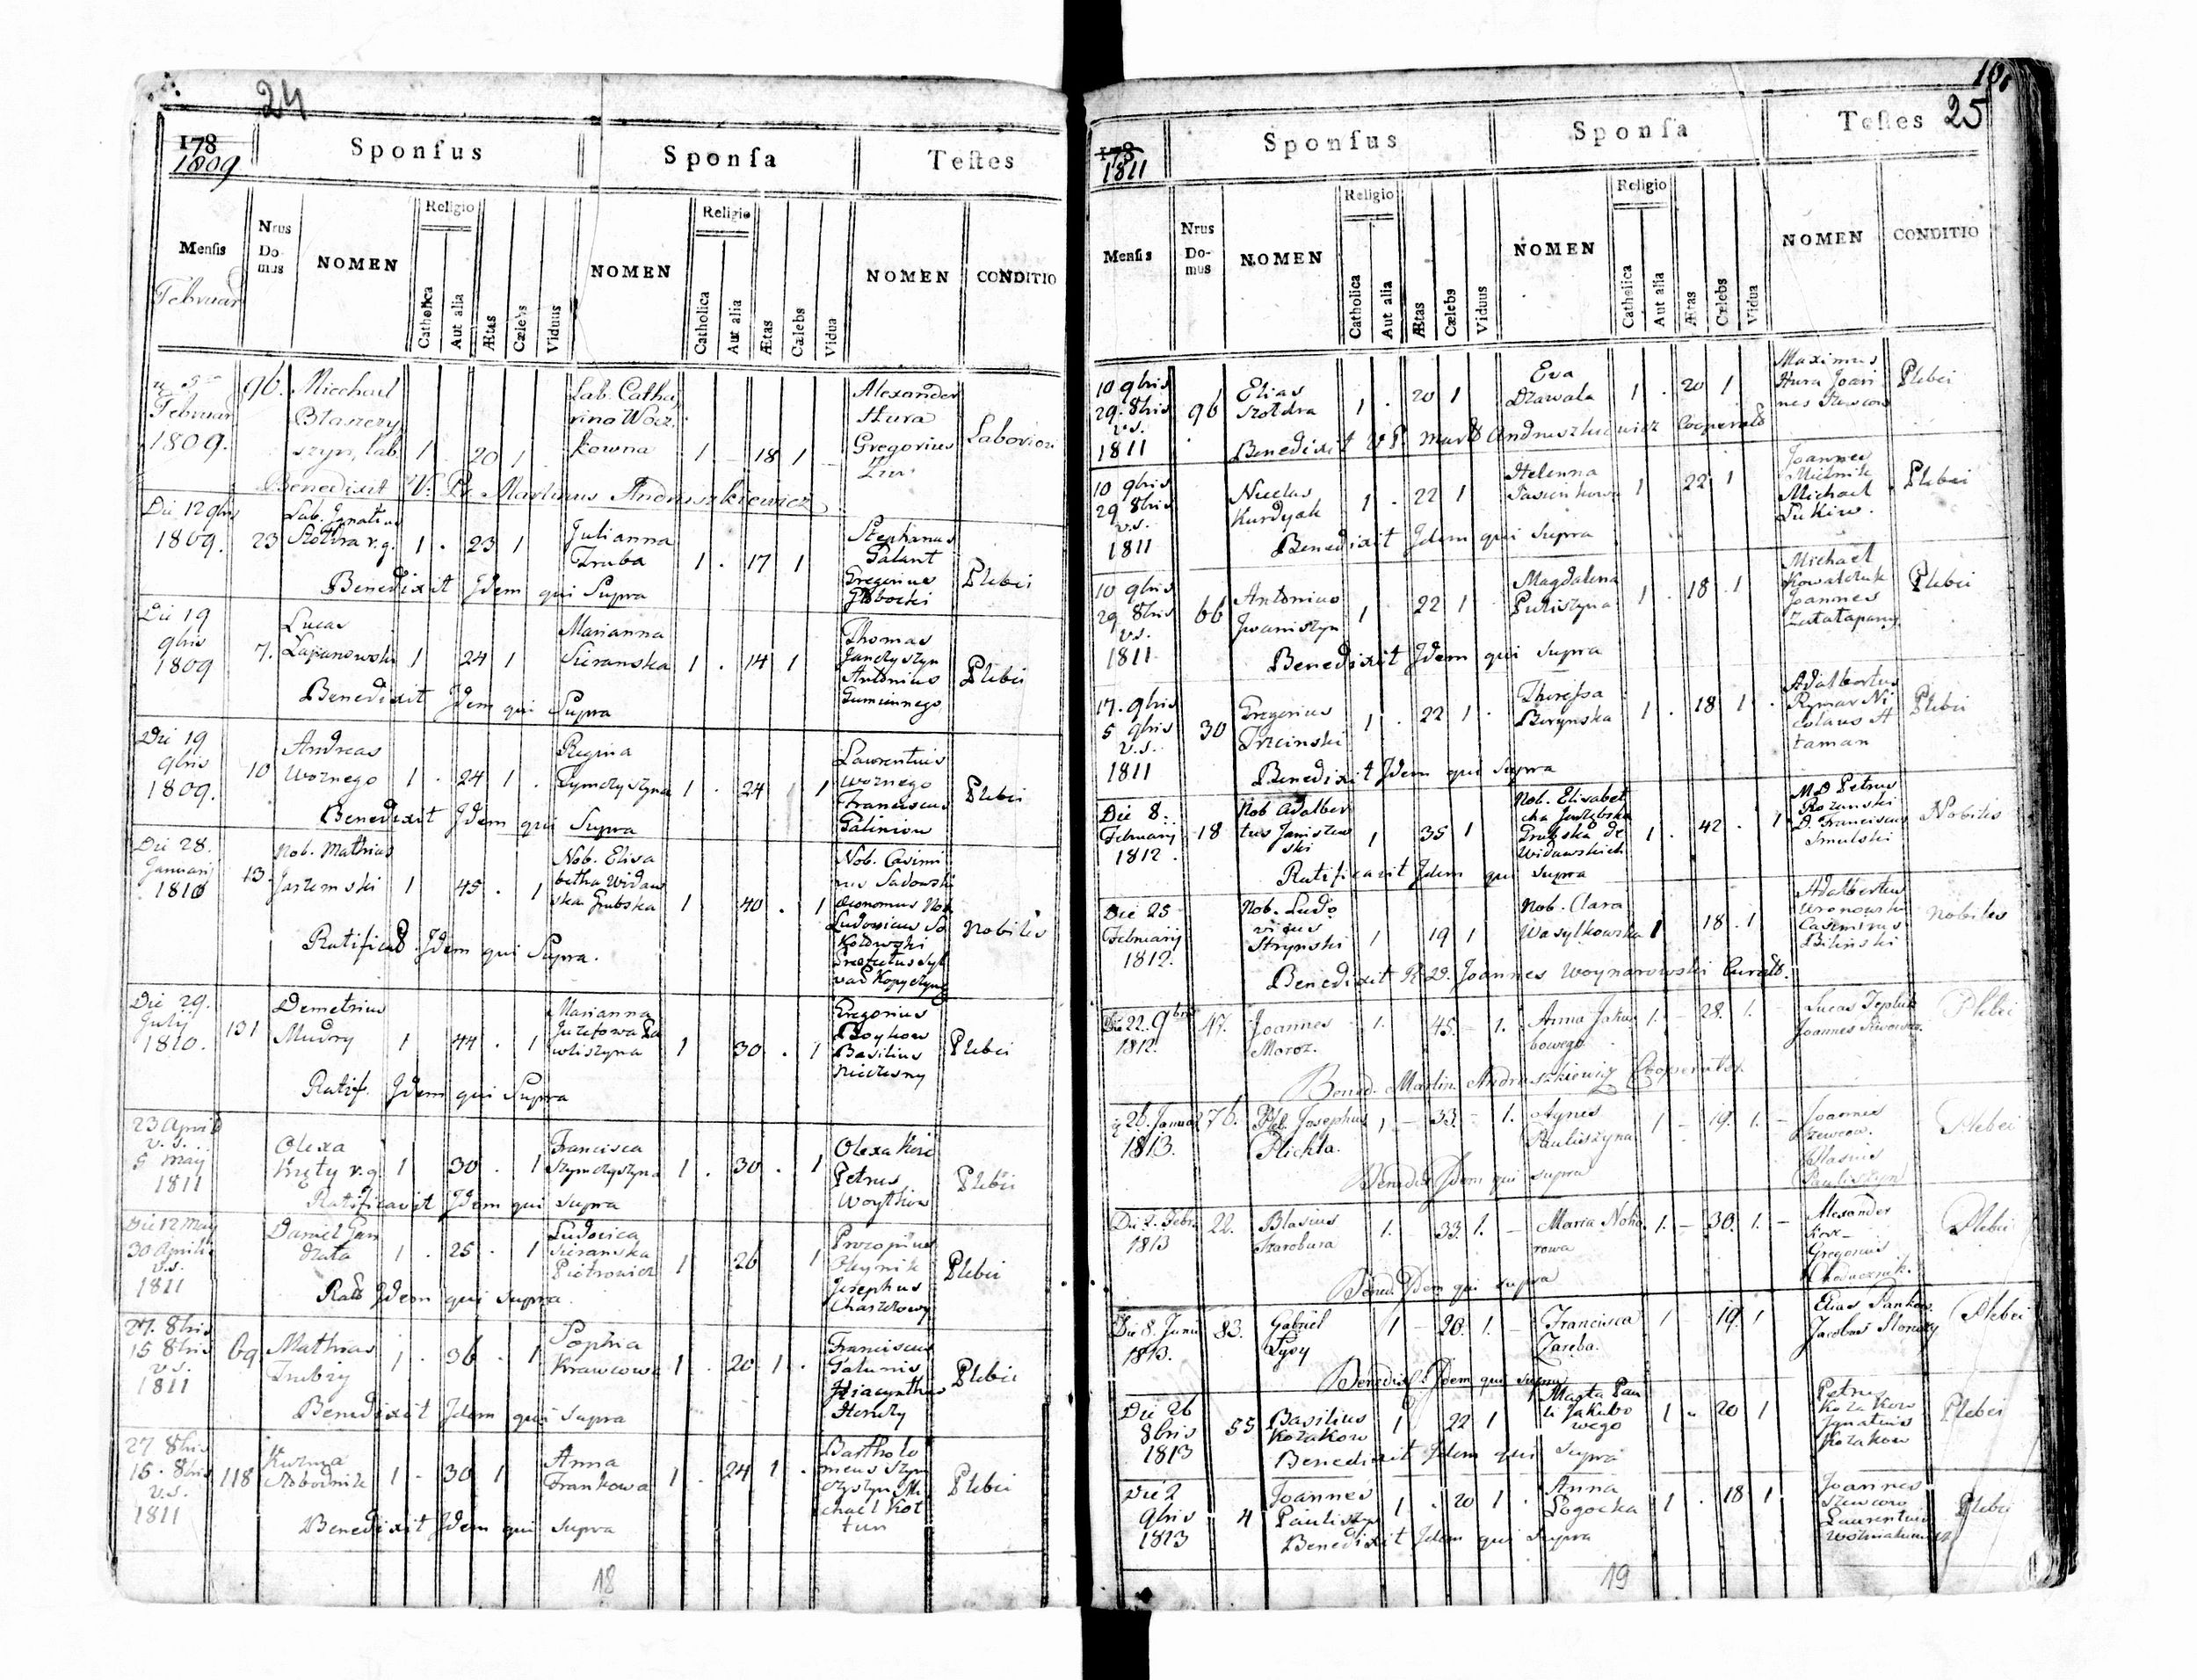 24
178
1809
Sponsus
Sponsa
Testes
Mensis
Februar
Nrus Do-mus
NOMEN
Religio
Catholica
Aut alia
Ætas
Cælebs
Viduus
NOMEN
Religio
Catholica
Aut alia
Ætas
Cælebs
Vidua
NOMEN
CONDITIO
5 Februar 1809. 96. Miechael Błaszczyszyn, lab. 1 20 1 Lab. Catharina Woz kowna 1 18 1 Alexander Hura Gregorius Laboriosi
Benedixit V. P. Martinus Andruszkiewicz
Die 12 9bris 1809. 23 Lab. Ignatius Szołdra v. g. 1 . 23 1 Julianna Truba 1 . 17 1 Stephanus Galant Gregorius Głębocki Plebei
Benedixit Idem qui Supra
Die 19 9bris 1809 7. Lucas Łapanowski 1 24 1 Marianna Sieranska 1 . 14 1 Thomas Janczyszyn Antonius Gumiennego Plebei
Benedixit Idem qui Supra
Die 19 9bris 1809. 10 Andreas Woznego 1 . 24 1 . Regina Szymczyszyna 1 . 24 1 Laurentius Woznego Franciscus Galiniow Plebei
Benedixit Idem qui Supra
Die 28. Januarij 1810 13. Nob. Mathias Jarzemski 1 45 . 1 Nob. Elisabetha Widawska Grubska 1 40 . 1 Nob. Casimirus Sadowski Œconomus Nob. Ludovicus Sokołowski Kopyczyn Nobiles
Ratificad Idem qui Supra.
Die 29. July 1810. 131 Demetrius Mudry 1 44 . 1 Marianna Juzefowa Pawliszyna 1 30 . 1 Gregorius Boykow Basilius Nieczesny Plebei
Ratif. Idem qui Supra
23 April v. s. 5 May 1811 Olexa Kręty v. g. 1 30 . 1 Francisca Szymczyszyna 1 . 30 . 1 Olexa Petrus Woythiow Plebei
Ratificavit Idem qui supra
Die 12 May 30 Aprilis v.s. 1811 Daniel Gandzała 1 . 25 . 1 Ludovica Sieranska Piotrowicz 1 26 1 Procopius Oleynik Josephus Charzdowy Plebei
Rat Idem qui supra.
27. 8bris 15 8bris v.s. 1811 69 Mathias Trubiy 1 . 36 . 1 Sophia Krawcowa 1 . 20 1 . Franciscus Galunis Hiacynthus Hendzy Plebei
Benedixit Idem qui Supra
27 8bris 15. 8bris v.s. 1811 118 Kuzma Słobodnik 1 . 30 1 Anna Frankowa 1 . 24 1 . Bartholomeus Szymczyszyn Michael Kottun Plebei
Benedixit Idem qui supra
18
25
178
1811
Sponsus
Sponsa
Testes
Mensis
Nrus Do-mus
NOMEN
Religio
Catholica
Aut alia
Ætas
Cælebs
Viduus
NOMEN
Religio
Catholica
Aut alia
Ætas
Cælebs
Vidua
NOMEN
CONDITIO
10 9bris 29. 8bris v.s. 1811 96 Elias Szołdra 1 . 20 1 Eva Dzawala 1 . 20 1 Maximus Hura Joannes Szewcow Plebei
Benedixit V. P. Mart Andruszkiewicz Cooperat
10 9bris 29 8bris v.s. 1811 Nicolas Kurdyak 1 . 22 1 Helenna Pasieukowa 1 22 1 Joannes Mielnik Michael Lukiw. Plebei
Benedixit Idem qui Supra
10 9bris 29 8bris v.s. 1811 66 Antonius Iwaniszyn 1 22 1 Magdalena Puliszyna 1 . 18 . 1 Michael Kowalczuk Joannes Plebei
Benedixit Idem qui Supra
17. 9bris 5 9bris v.s. 1811 30 Gregorius Trzcinski 1 . 22 1 . Theressa Berynska 1 . 18 1 . Adalbertus Rymar Nicolaus Ataman Plebei
Benedixit Idem qui Supra
Die 8. February 1812. 18 Nob Adalbertus Janiszewski 1 35 1 Nob. Elisabetha Grubska de Widawskich 1 . 42 . 1 MD Petrus Rozanski D. Franciscus Smulski Nobiles
Ratificavit Idem qui Supra
Die 25 February 1812. Nob. Ludovicus Strynski 1 19 1 Nob. Clara Wasylkowska 1 18 . 1 Adalbertus Uronowski Casimirus Bilinski Nobiles
Benedixit R. D. Joannes Woynarowski Curat.
Die 22. 9bris 1812. 47. Joannes Moroz. 1. 45. - 1. Anna Jakubowego 1. - 28. 1. - Lucas Joannes Plebei
Bened. Martin. Andruszkiewicz Cooperator.
26. Januar 1813. 76. Josephus Plichta. 1 - 33. - 1. Agnes Pauliszyna 1 - 19. 1. - Joannes Szewcow. Blasius Pauliszyn Plebei
Bened. Idem qui supra
Die 2. Febr. 1813 22. Blasius Szarabura 1. 33. 1. - Maria Nohorowa 1. - 30. 1. - Alexander Gregorius Plebei
Bened. Idem qui supra
Die 8. Junii 1813. 83. Gabriel Łysy 1 - 20. 1. - Francisca Zaręba. 1 - 19. 1 Elias Pankow Jacobus Plebei
Benedixit Idem qui supra
Die 26 8bris 1813 55 Basilius Kozakow 1 22 1 Marta Pauli Jakubowego 1 . 20 1 Petrus Kozakow Ignatius Kozakow Plebei
Benedixit Idem qui Supra
Die 2 9bris 1813 4 Joannes Pauliszyn 1 . 20 1 . Anna Pogocka 1 . 18 1 Joannes Szewcow Laurentius Plebei
Benedixit Idem qui Supra
19